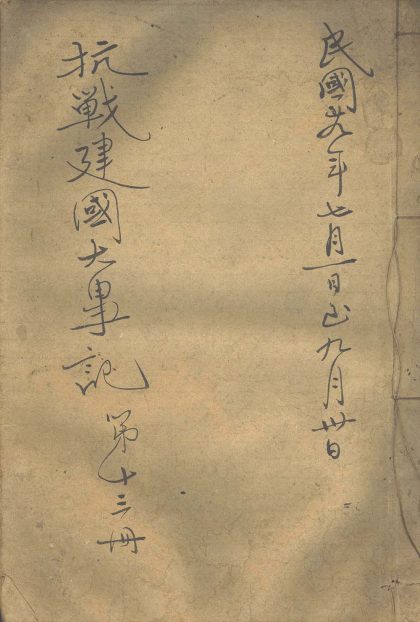 民國廿九年七月一日至九月卅日
抗戰建國大事記 第十三冊